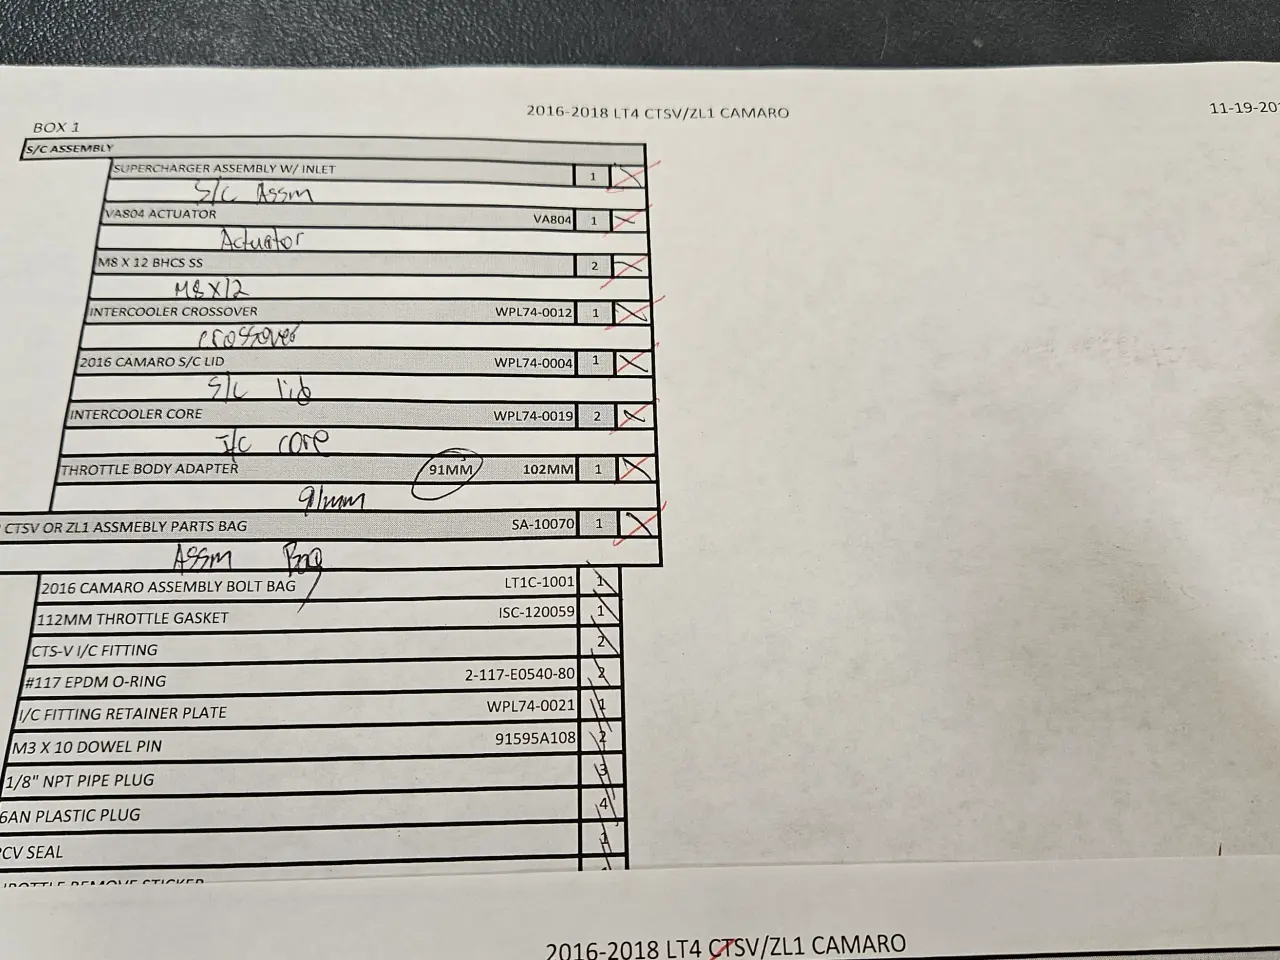 2016-2018 LT4 CTSV/ZL1 CAMARO
11-19-201
BOX 1
S/C ASSEMBLY
SUPERCHARGER ASSEMBLY W/ INLET 1
S/C Assm
VA804 ACTUATOR VA804 1
Actuator
M8 X 12 BHCS SS 2
M8X12
INTERCOOLER CROSSOVER WPL74-0012 1
crossover
2016 CAMARO S/C LID WPL74-0004 1
S/C lid
INTERCOOLER CORE WPL74-0019 2
I/C core
THROTTLE BODY ADAPTER 91MM 102MM 1
91mm
CTSV OR ZL1 ASSMEBLY PARTS BAG SA-10070 1
Assm Bag
2016 CAMARO ASSEMBLY BOLT BAG LT1C-1001 1
112MM THROTTLE GASKET ISC-120059 1
CTS-V I/C FITTING 2
#117 EPDM O-RING 2-117-E0540-80 2
I/C FITTING RETAINER PLATE WPL74-0021 1
M3 X 10 DOWEL PIN 91595A108 2
1/8" NPT PIPE PLUG 3
6AN PLASTIC PLUG 4
PCV SEAL 1
2016-2018 LT4 CTSV/ZL1 CAMARO